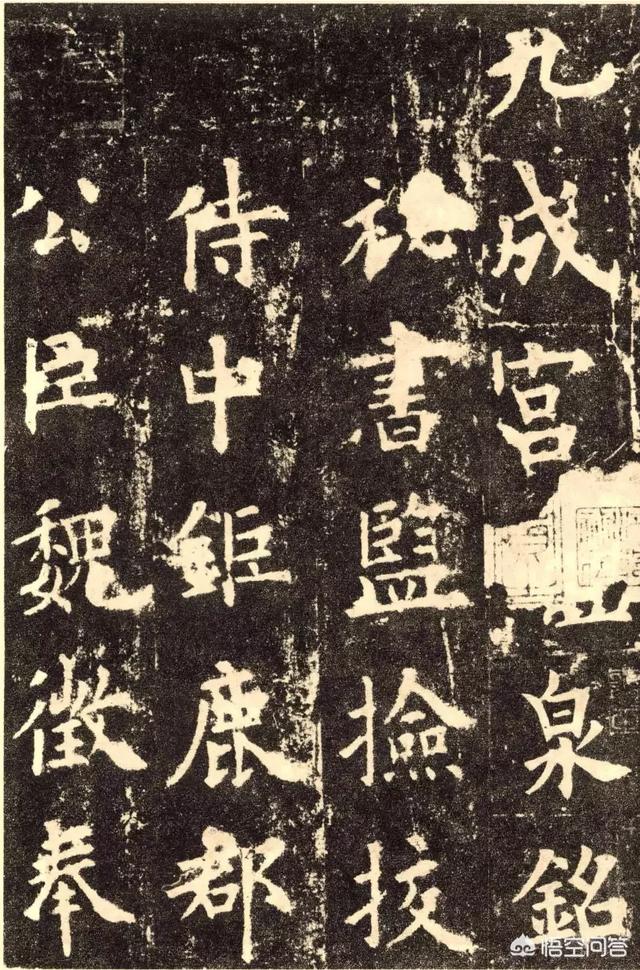 九成宫泉銘
祕書監撿挍
侍中鉅鹿郡
公臣魏徵奉
悟空问答